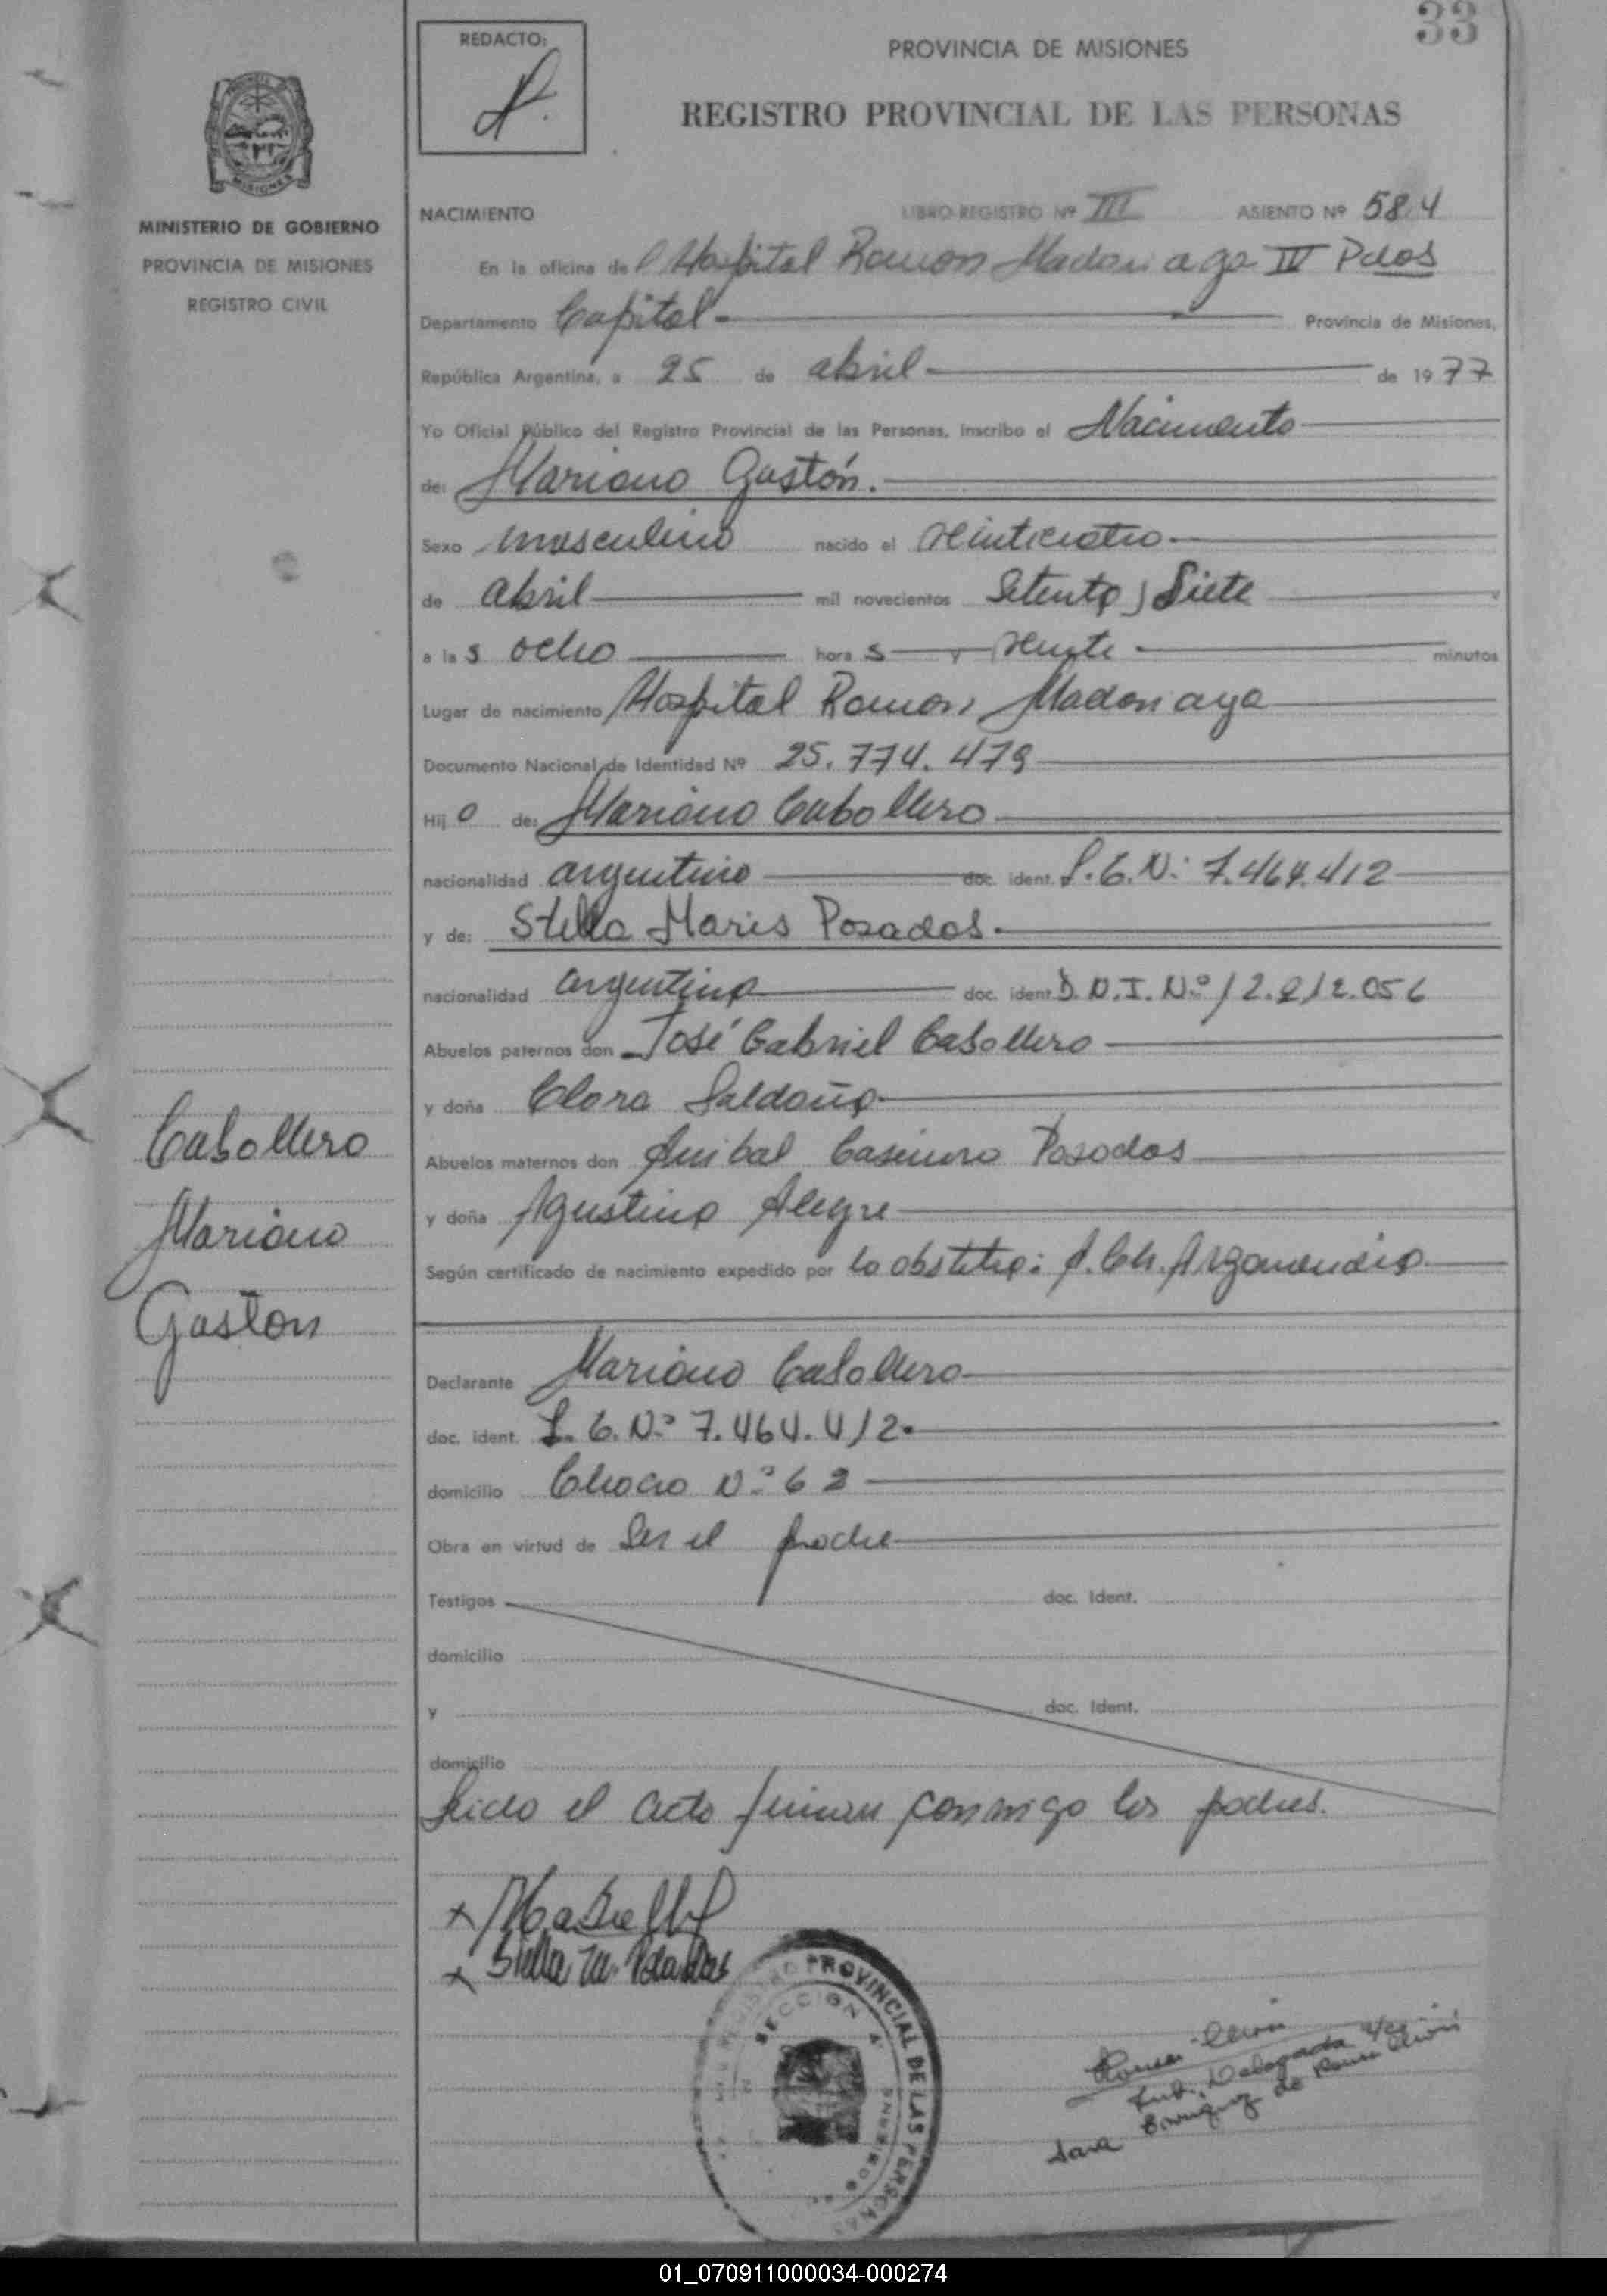 33
REDACTO:
PROVINCIA DE MISIONES
REGISTRO PROVINCIAL DE LAS PERSONAS
MINISTERIO DE GOBIERNO
PROVINCIA DE MISIONES
REGISTRO CIVIL
NACIMIENTO LIBRO REGISTRO Nº III ASIENTO Nº 584
En la oficina del Hospital Ramon Madariaga III Pdas
Departamento Capital Provincia de Misiones,
República Argentina, a 25 de abril de 1977
Yo Oficial Público del Registro Provincial de las Personas, inscribo el Nacimiento
de: Mariano Gastón.
Sexo masculino nacido el veinticuatro
de abril mil novecientos Setenta y Siete
a las ocho horas y veinte minutos
Lugar de nacimiento Hospital Ramon Madariaga
Documento Nacional de Identidad Nº 25.774.479
Hijo de: Mariano Caballero
nacionalidad argentino doc. ident. L.E.N: 7.464.412
y de: Stella Maris Posadas
nacionalidad argentina doc. ident D.N.I. Nº 12.212.056
Abuelos paternos don José Gabriel Caballero
y doña Clara Saldaña
Abuelos maternos don Anibal Casimiro Posadas
y doña Agustina Alegre
Según certificado de nacimiento expedido por la obstetra: A. Ch. Argamendia
Caballero
Mariano
Gaston
Declarante Mariano Caballero
doc. ident. L.E.Nº 7.464.412
domicilio Chaco Nº 62
Obra en virtud de Ser el padre
Testigos doc. Ident.
domicilio
y doc. Ident.
domicilio
Leido el acto firman conmigo los padres.
Stella M. Posadas
REGISTRO PROVINCIAL DE LAS PERSONAS
SECCION
Sub. Delegada
Sara
01_070911000034-000274